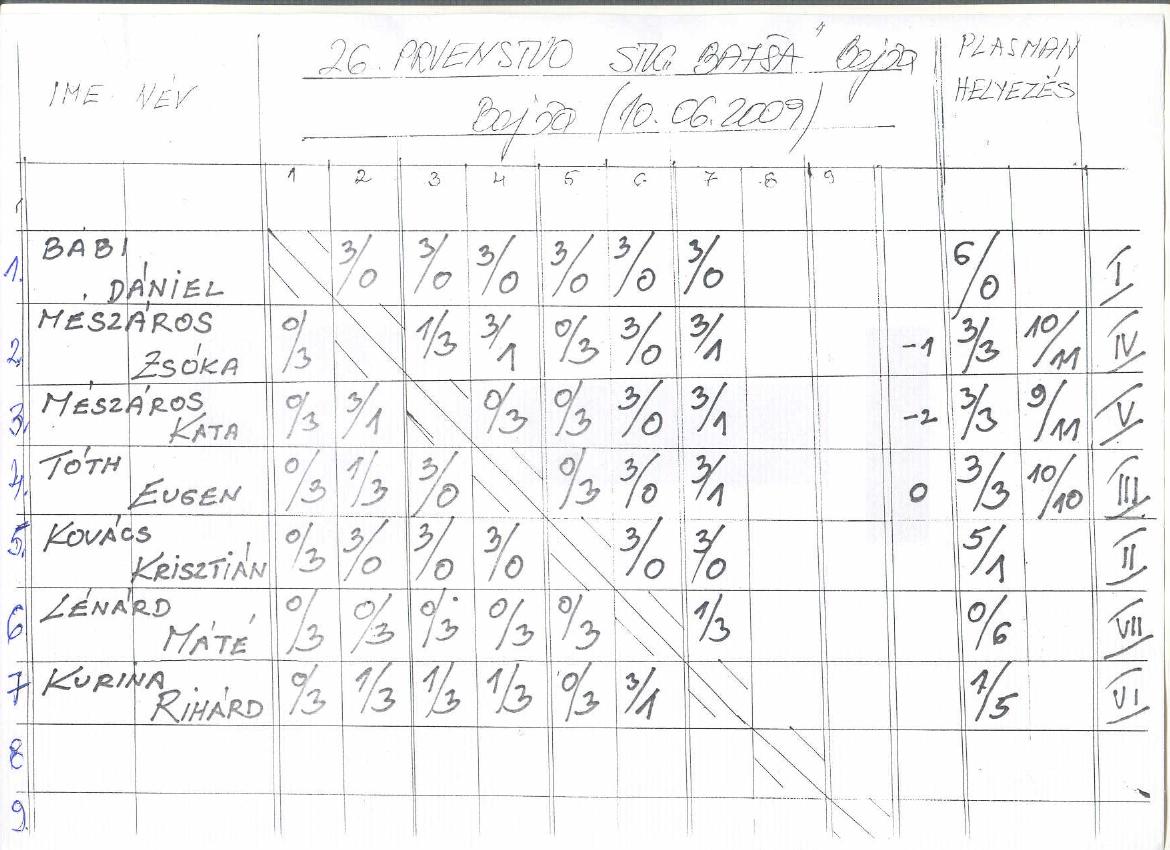 26. PRVENSTVO STG. BAJŠA " Bajša
Bajša (10.06.2009)
IME NÉV
PLASMAN
HELYEZÉS
1 2 3 4 5 6 7 8 9
1. BÁBI DÁNIEL 3/0 3/0 3/0 3/0 3/0 3/0 6/0 I
2. MÉSZÁROS ZSÓKA 0/3 1/3 3/1 0/3 3/0 3/1 -1 3/3 10/11 IV
3. MÉSZÁROS KATA 0/3 3/1 0/3 0/3 3/0 3/1 -2 3/3 9/11 V
4. TÓTH EUGEN 0/3 1/3 3/0 0/3 3/0 3/1 0 3/3 10/10 III
5. KOVÁCS KRISZTIÁN 0/3 3/0 3/0 3/0 3/0 3/0 5/1 II
6 LÉNÁRD MÁTÉ 0/3 0/3 0/3 0/3 0/3 1/3 0/6 VII
7 KURINA RIHÁRD 0/3 1/3 1/3 1/3 0/3 3/1 1/5 VI
8
9.